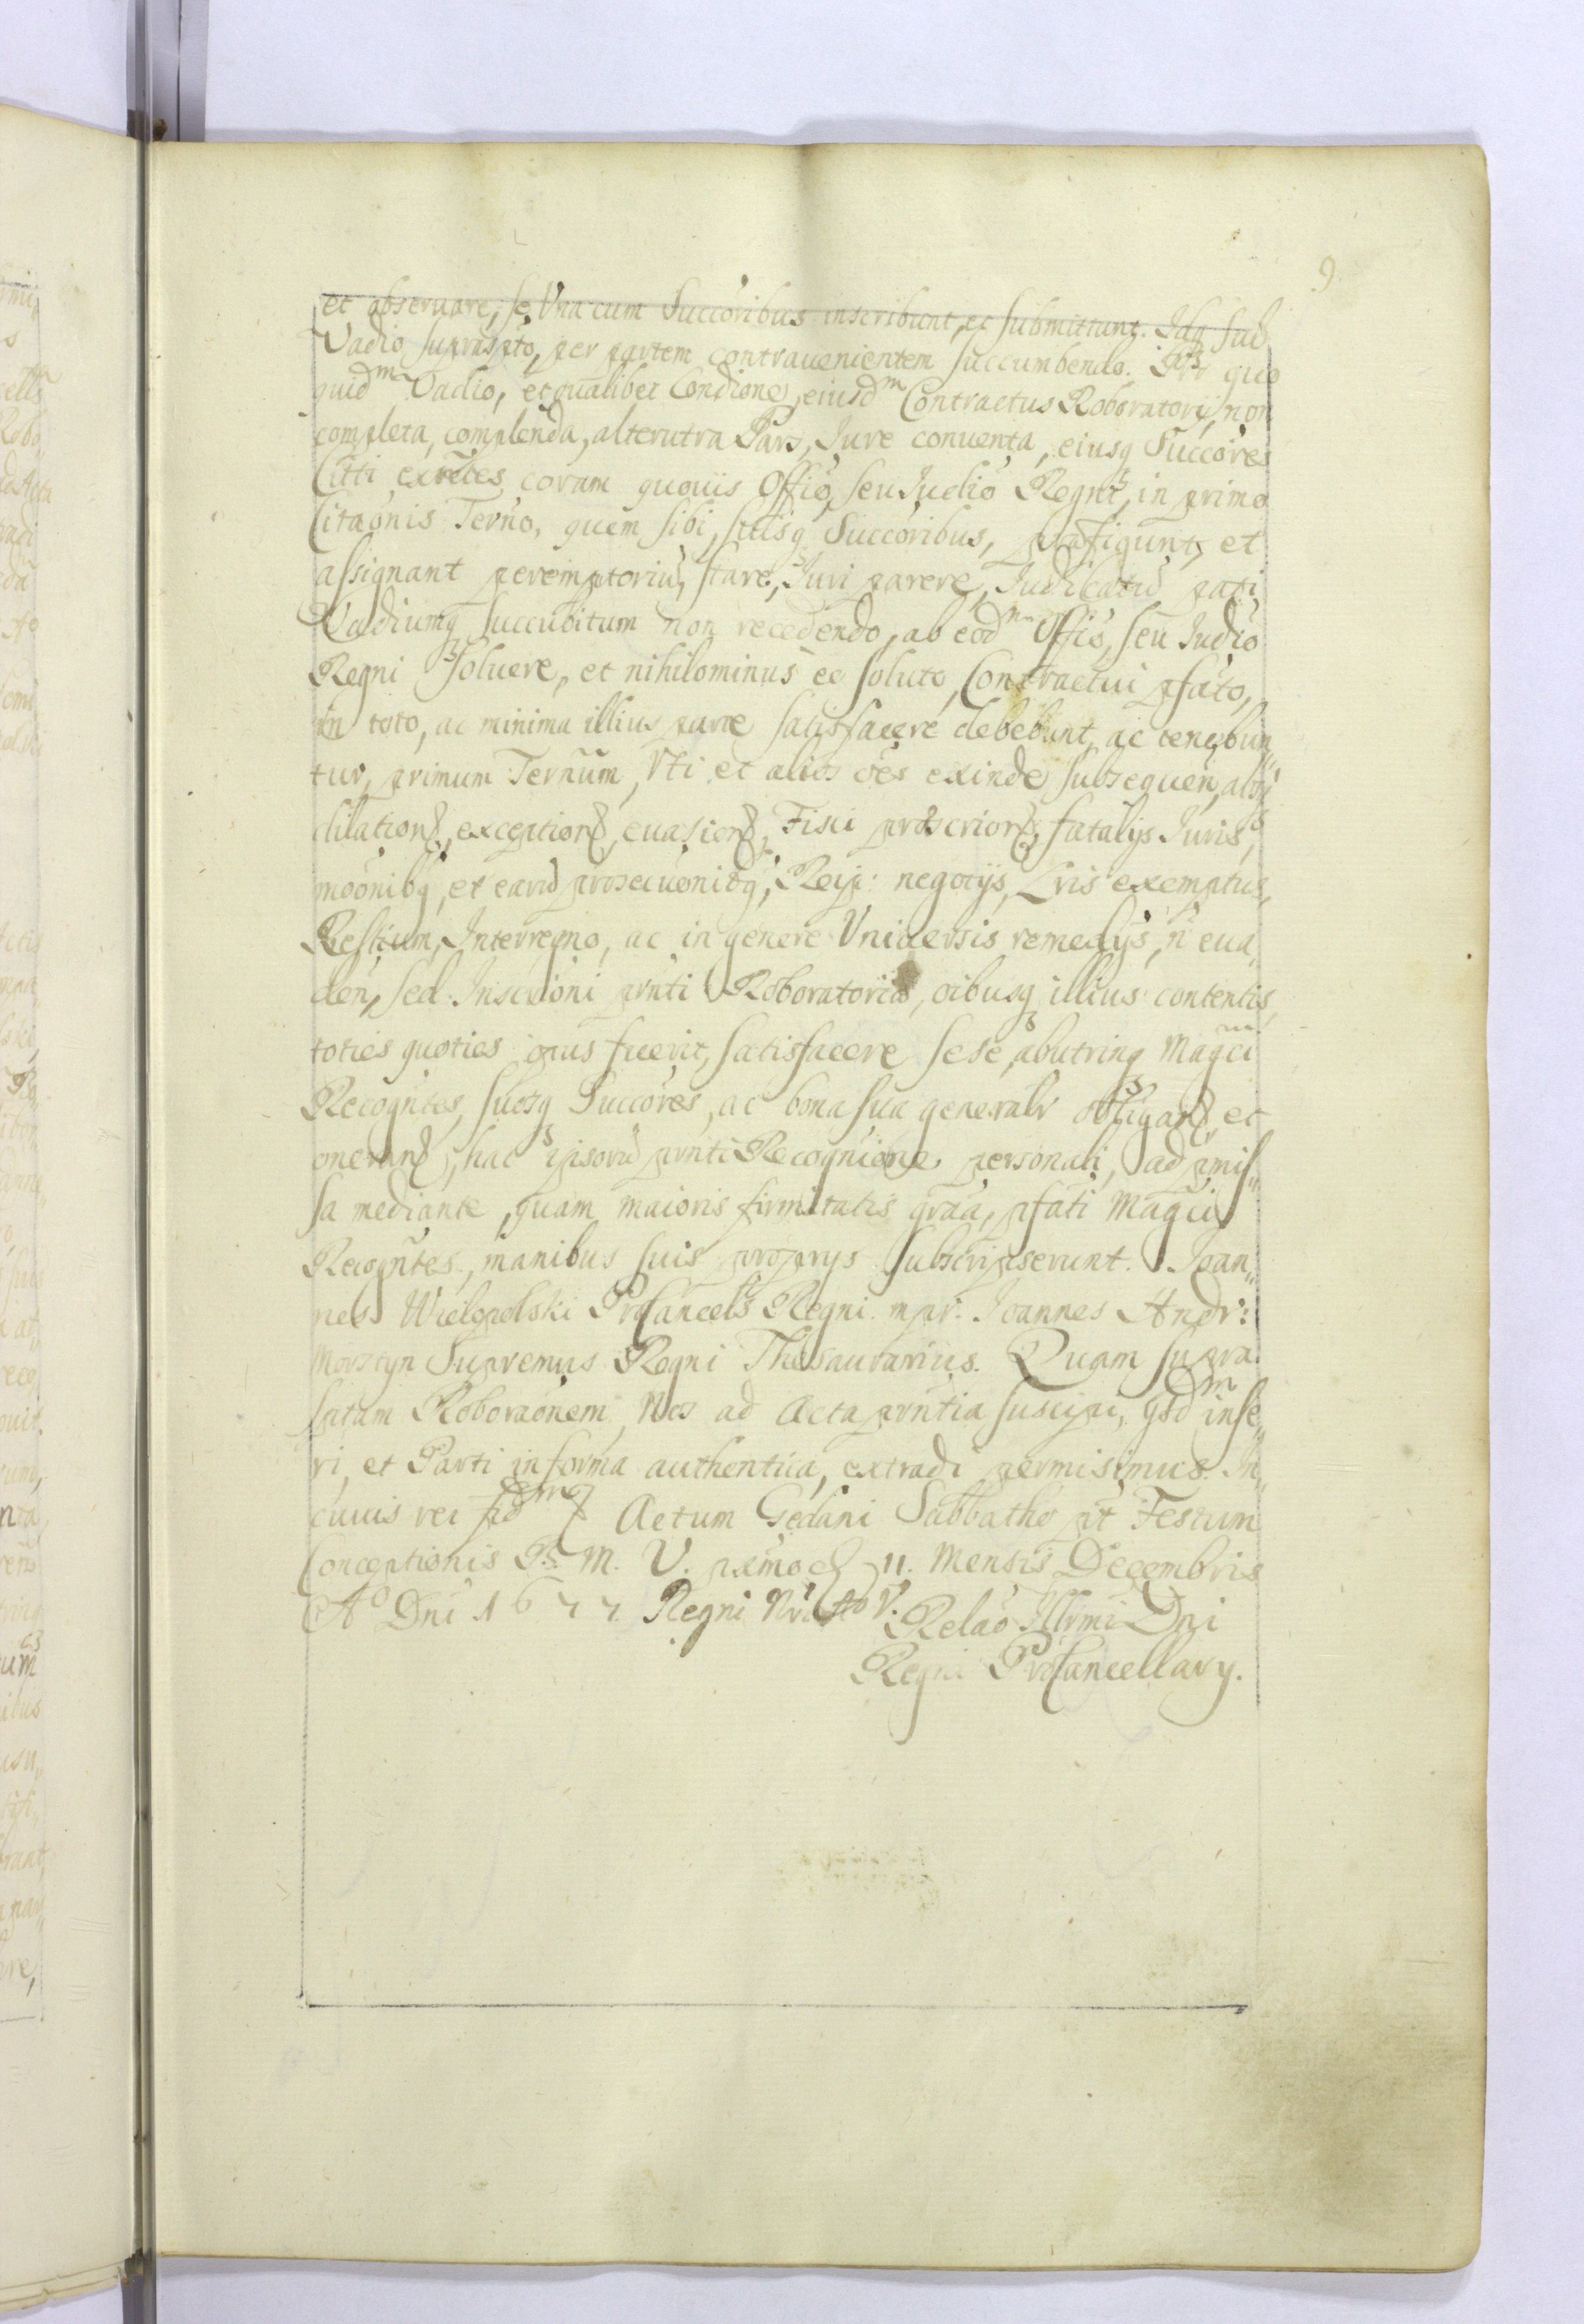 9
et obseruare, se Vna cum Succoribus inscribunt, et submittunt. Idq sub
Vadio suprasptο, per partem contrauenientem succumbendo. Pro quo
quidm Vadio, et qualibet Condione, eiusdm Contractus Roboratorij, non
completa, complenda, alterutra Pars, Jure conuenta, eiusq Succores
Citti exntes coram quouis Offio, seu Judio Regni, in primo
Citaonis Terno, quem sibi, suisq Succoribus, pfigunt, et
assignant peremptoriu, stare, Juri parere, Judicatu pati
Vadiumq succubitum non recedendo, ab eodm Offio, seu Judio
Regni soluere, et nihilominus eo soluto, Contractui pfato,
in toto, ac minima illius parte satisfacere debebunt, ac tenebun„
tur, primum Ternum, Vti et alios oes exinde subsequen, absq
dilation, exception, euasion, Fisci proscrion, fatalys Juris,
moonibq, et earu prosecuonibq, Reip: negocijs, Lris exemptus,
Restium, Interregno, ac in genere Vniuersis remedijs, n eua„
den, sed Inscrioni pnti Roboratoria, oibusq illius contentis,
toties quoties opus fuerit, satisfacere sese, abutrinq Magci
Recogntes, suosq Succores, ac bona sua generalr obligan, et
oneran, hac ipsoru pnti Recognione personali, ad pmis„
sa mediante, quam maioris firmitatis graa, pfati Magci
Recogntes, manibus suis proprys subscripserunt. Joan„
nes Wielopolski ProCancels Regni mpr. Joannes Andr:
Morstyn Supremus Regni Thesaurarius. Quam supra
sptam Roboraonem Nos ad Acta pntia suscipi, ysdm inse„
ri, et Parti in forma authentica, extradi permisimus. In„
cuius rei fidem Actum Gedani Sabbatho pt Festum
Conceptionis B. M. V. pximo d 11. Mensis Decembris
Ao Dni 1677. Regni Nri Ao V. Relao Illrmi Dni
Regni ProCancellary.